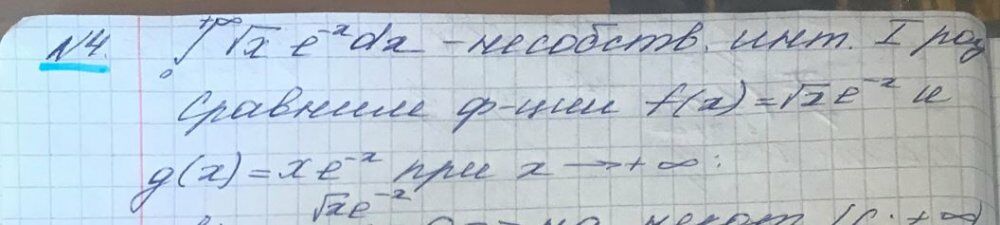 №4. ∫₀^{+∞} √x e^{-x} dx - несобств. инт. I род
Сравним ф-ции f(x) = √x e^{-x} и
g(x) = x e^{-x} при x → +∞:
√x e^{-x}